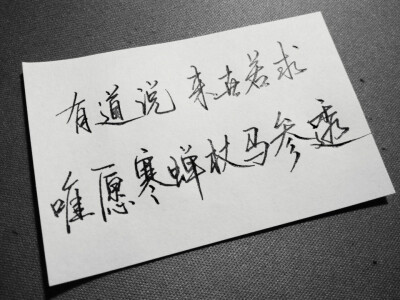 有道说 来世若求
唯愿寒蝉杖马参透